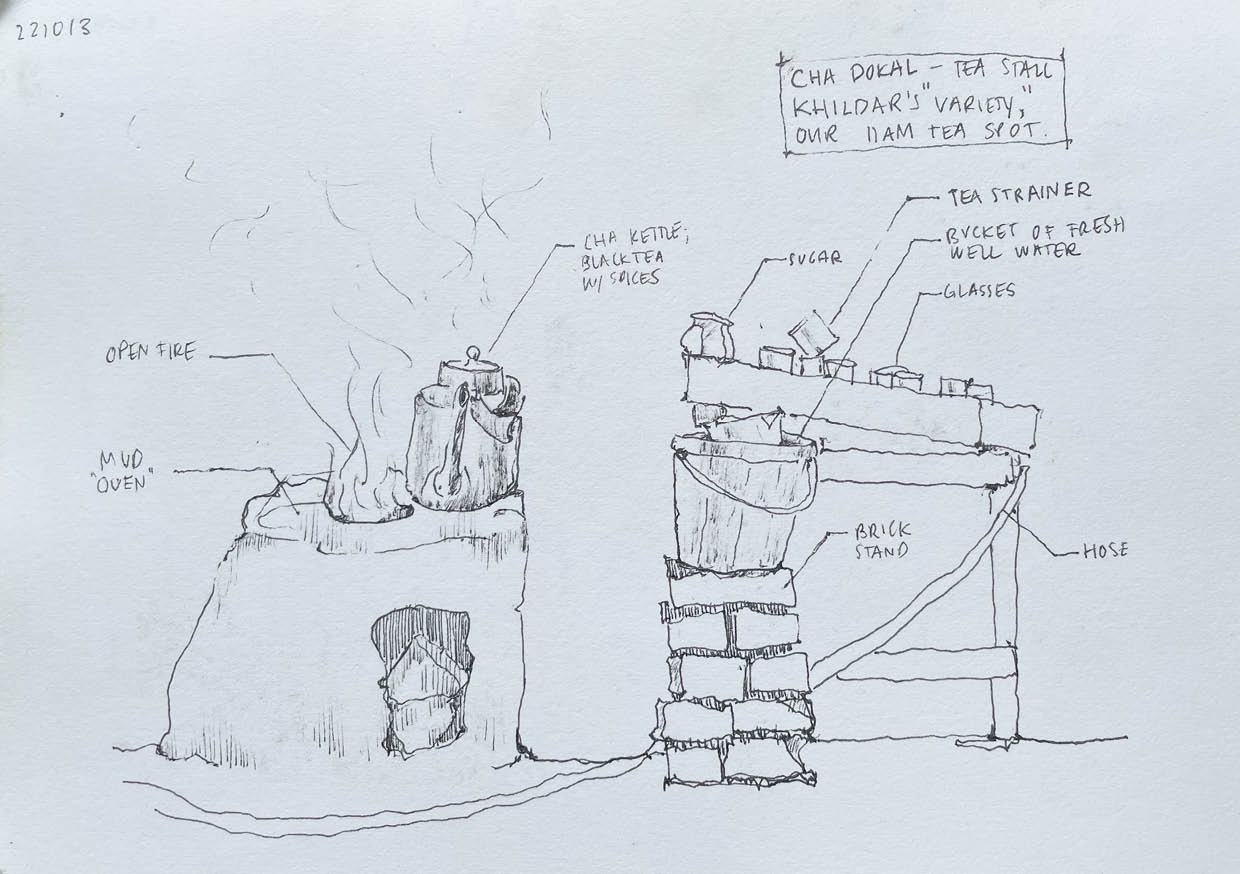 221013
CHA DOKAL – TEA STALL
KHILDAR'S "VARIETY,"
OUR 11AM TEA SPOT.
TEA STRAINER
BUCKET OF FRESH
WELL WATER
SUGAR
GLASSES
CHA KETTLE;
BLACK TEA
W/ SPICES
OPEN FIRE
MUD
"OVEN"
BRICK
STAND
HOSE